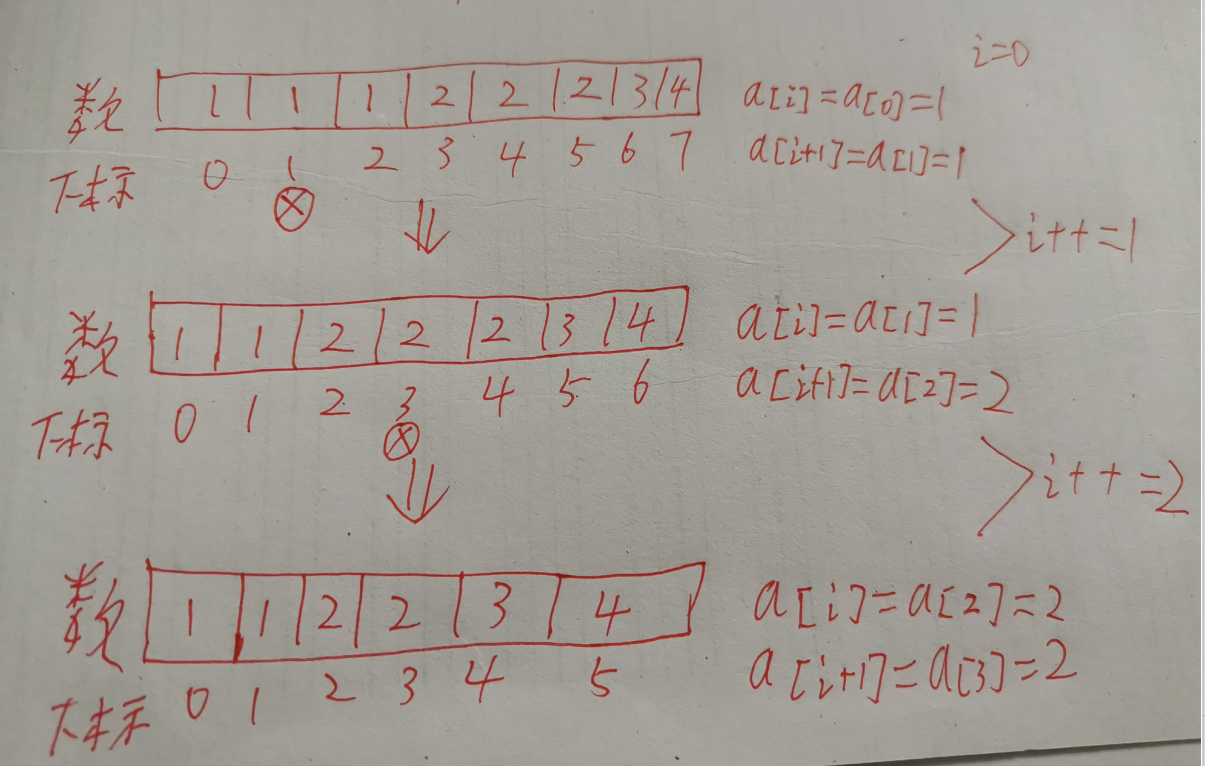 i=0
数 1 1 1 2 2 2 3 4 a[i]=a[0]=1
下标 0 1 2 3 4 5 6 7 a[i+1]=a[1]=1
i++=1
数 1 1 2 2 2 3 4 a[i]=a[1]=1
下标 0 1 2 3 4 5 6 a[i+1]=a[2]=2
i++=2
数 1 1 2 2 3 4 a[i]=a[2]=2
下标 0 1 2 3 4 5 a[i+1]=a[3]=2